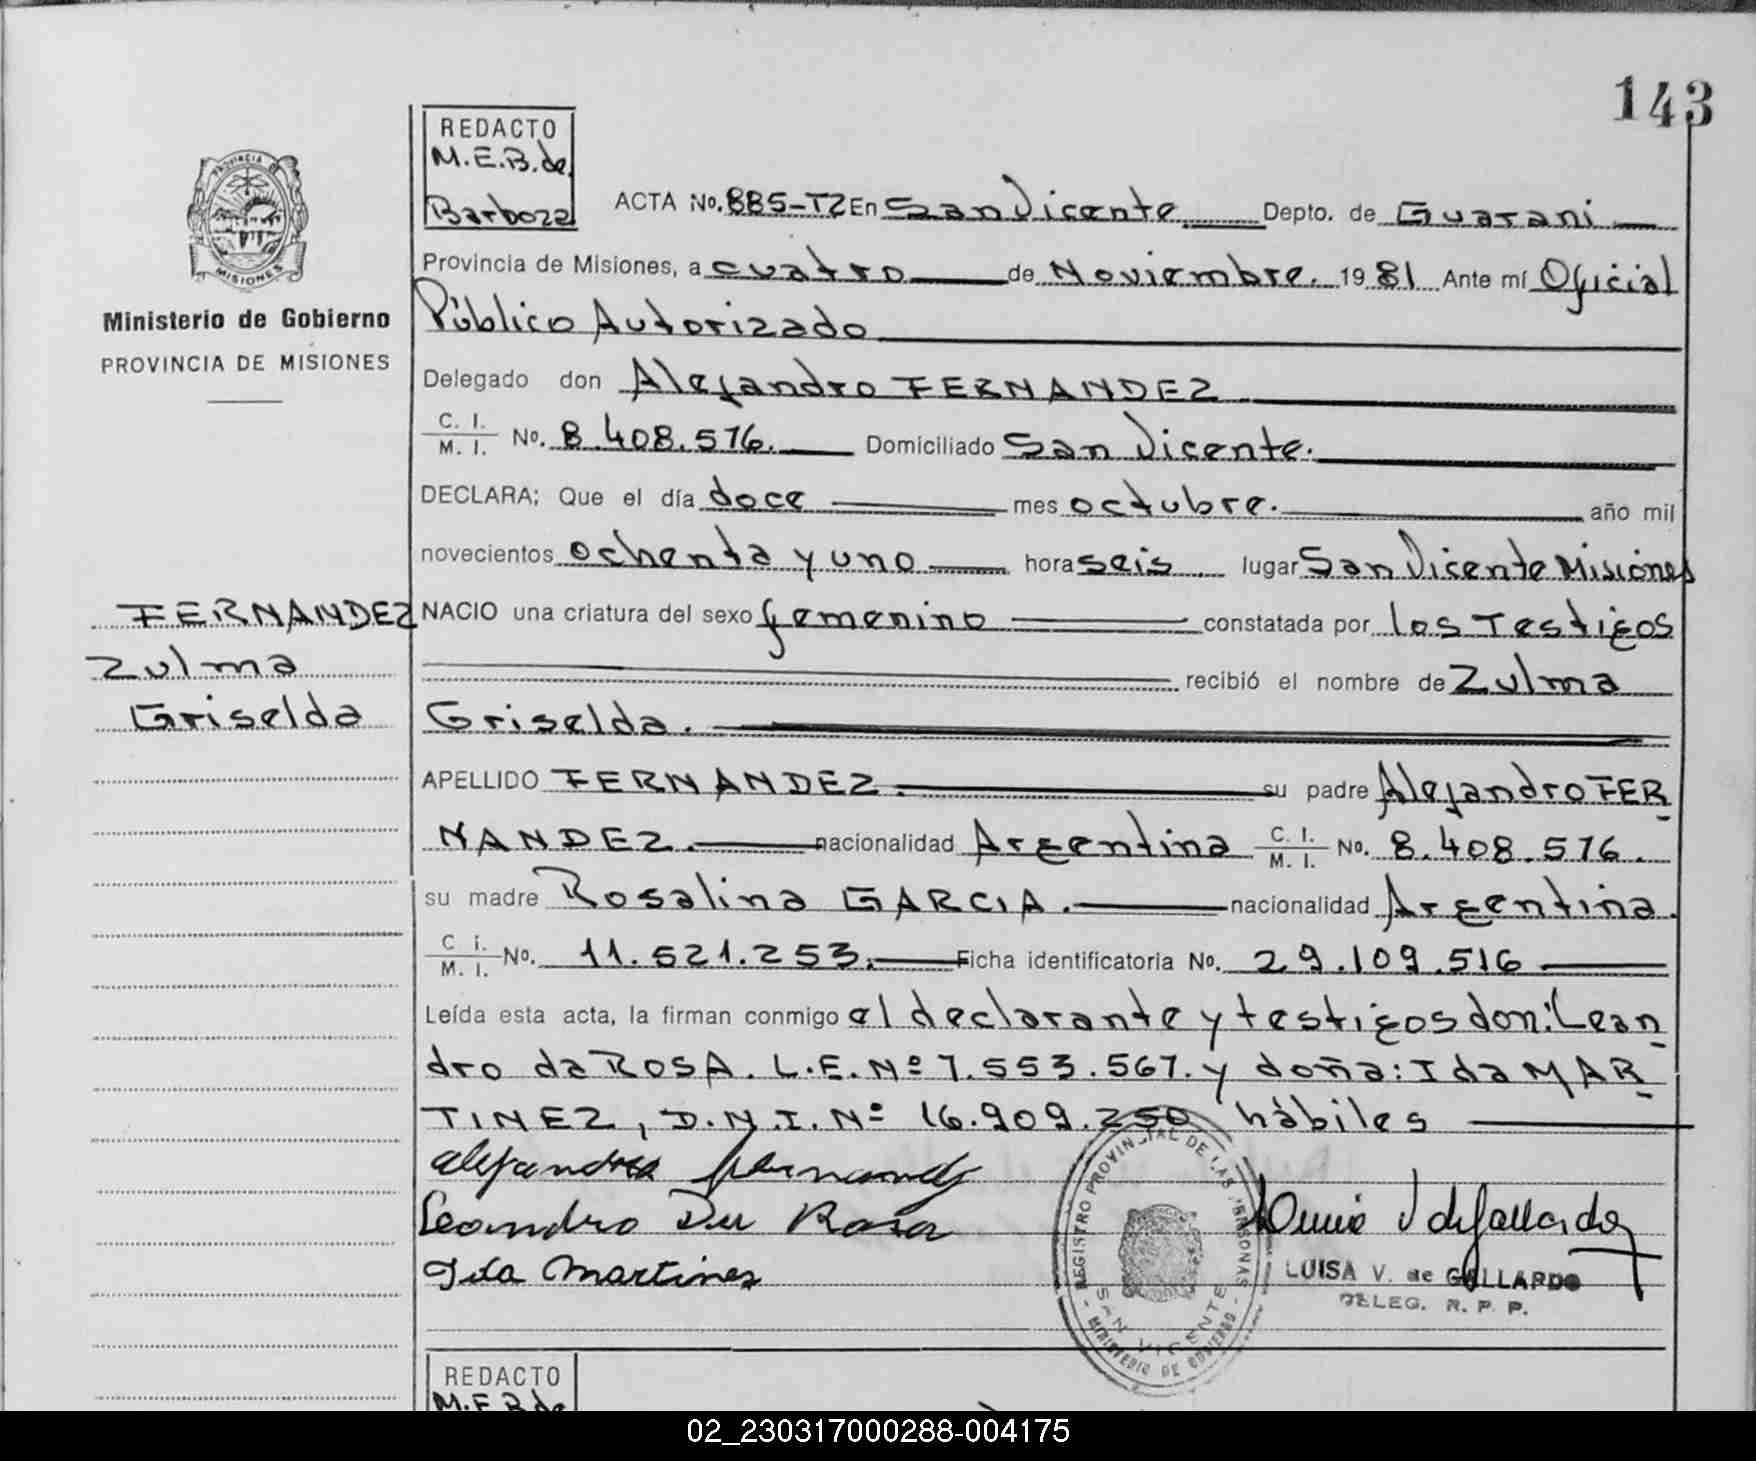 143
REDACTO
M.E.B.de
Barboza
PROVINCIA DE
MISIONES
Ministerio de Gobierno
PROVINCIA DE MISIONES
ACTA No. 885-T2 En San Vicente Depto. de Guarani
Provincia de Misiones, a cuatro de Noviembre. 1981 Ante mí Oficial
Público Autorizado
Delegado don Alejandro FERNANDEZ
C. I. / M. I. No. 8.408.516. Domiciliado San Vicente.
DECLARA: Que el día doce mes octubre. año mil
novecientos ochenta y uno hora seis lugar San Vicente Misiones
FERNANDEZ
Zulma
Griselda
NACIO una criatura del sexo femenino constatada por los Testigos
recibió el nombre de Zulma
Griselda.
APELLIDO FERNANDEZ. su padre Alejandro FER
NANDEZ. nacionalidad Argentina C. I. / M. I. No. 8.408.516.
su madre Rosalina GARCIA. nacionalidad Argentina.
C I. / M. I. No. 11.521.253. Ficha identificatoria No. 29.109.516
Leída esta acta, la firman conmigo el declarante y testigos don: Lean
dro da ROSA. L.E. Nº 7.553.567. y doña: Ida MAR
TINEZ, D.N.I. Nº 16.909.250 hábiles
alejandro fernandez
Leandro Da Rosa
Ida Martines
REGISTRO PROVINCIAL DE LAS PERSONAS
SAN VICENTE
MINISTERIO DE GOBIERNO
LUISA V. de GALLARDO
DELEG. R. P. P.
REDACTO
M.E.B.de
02_230317000288-004175